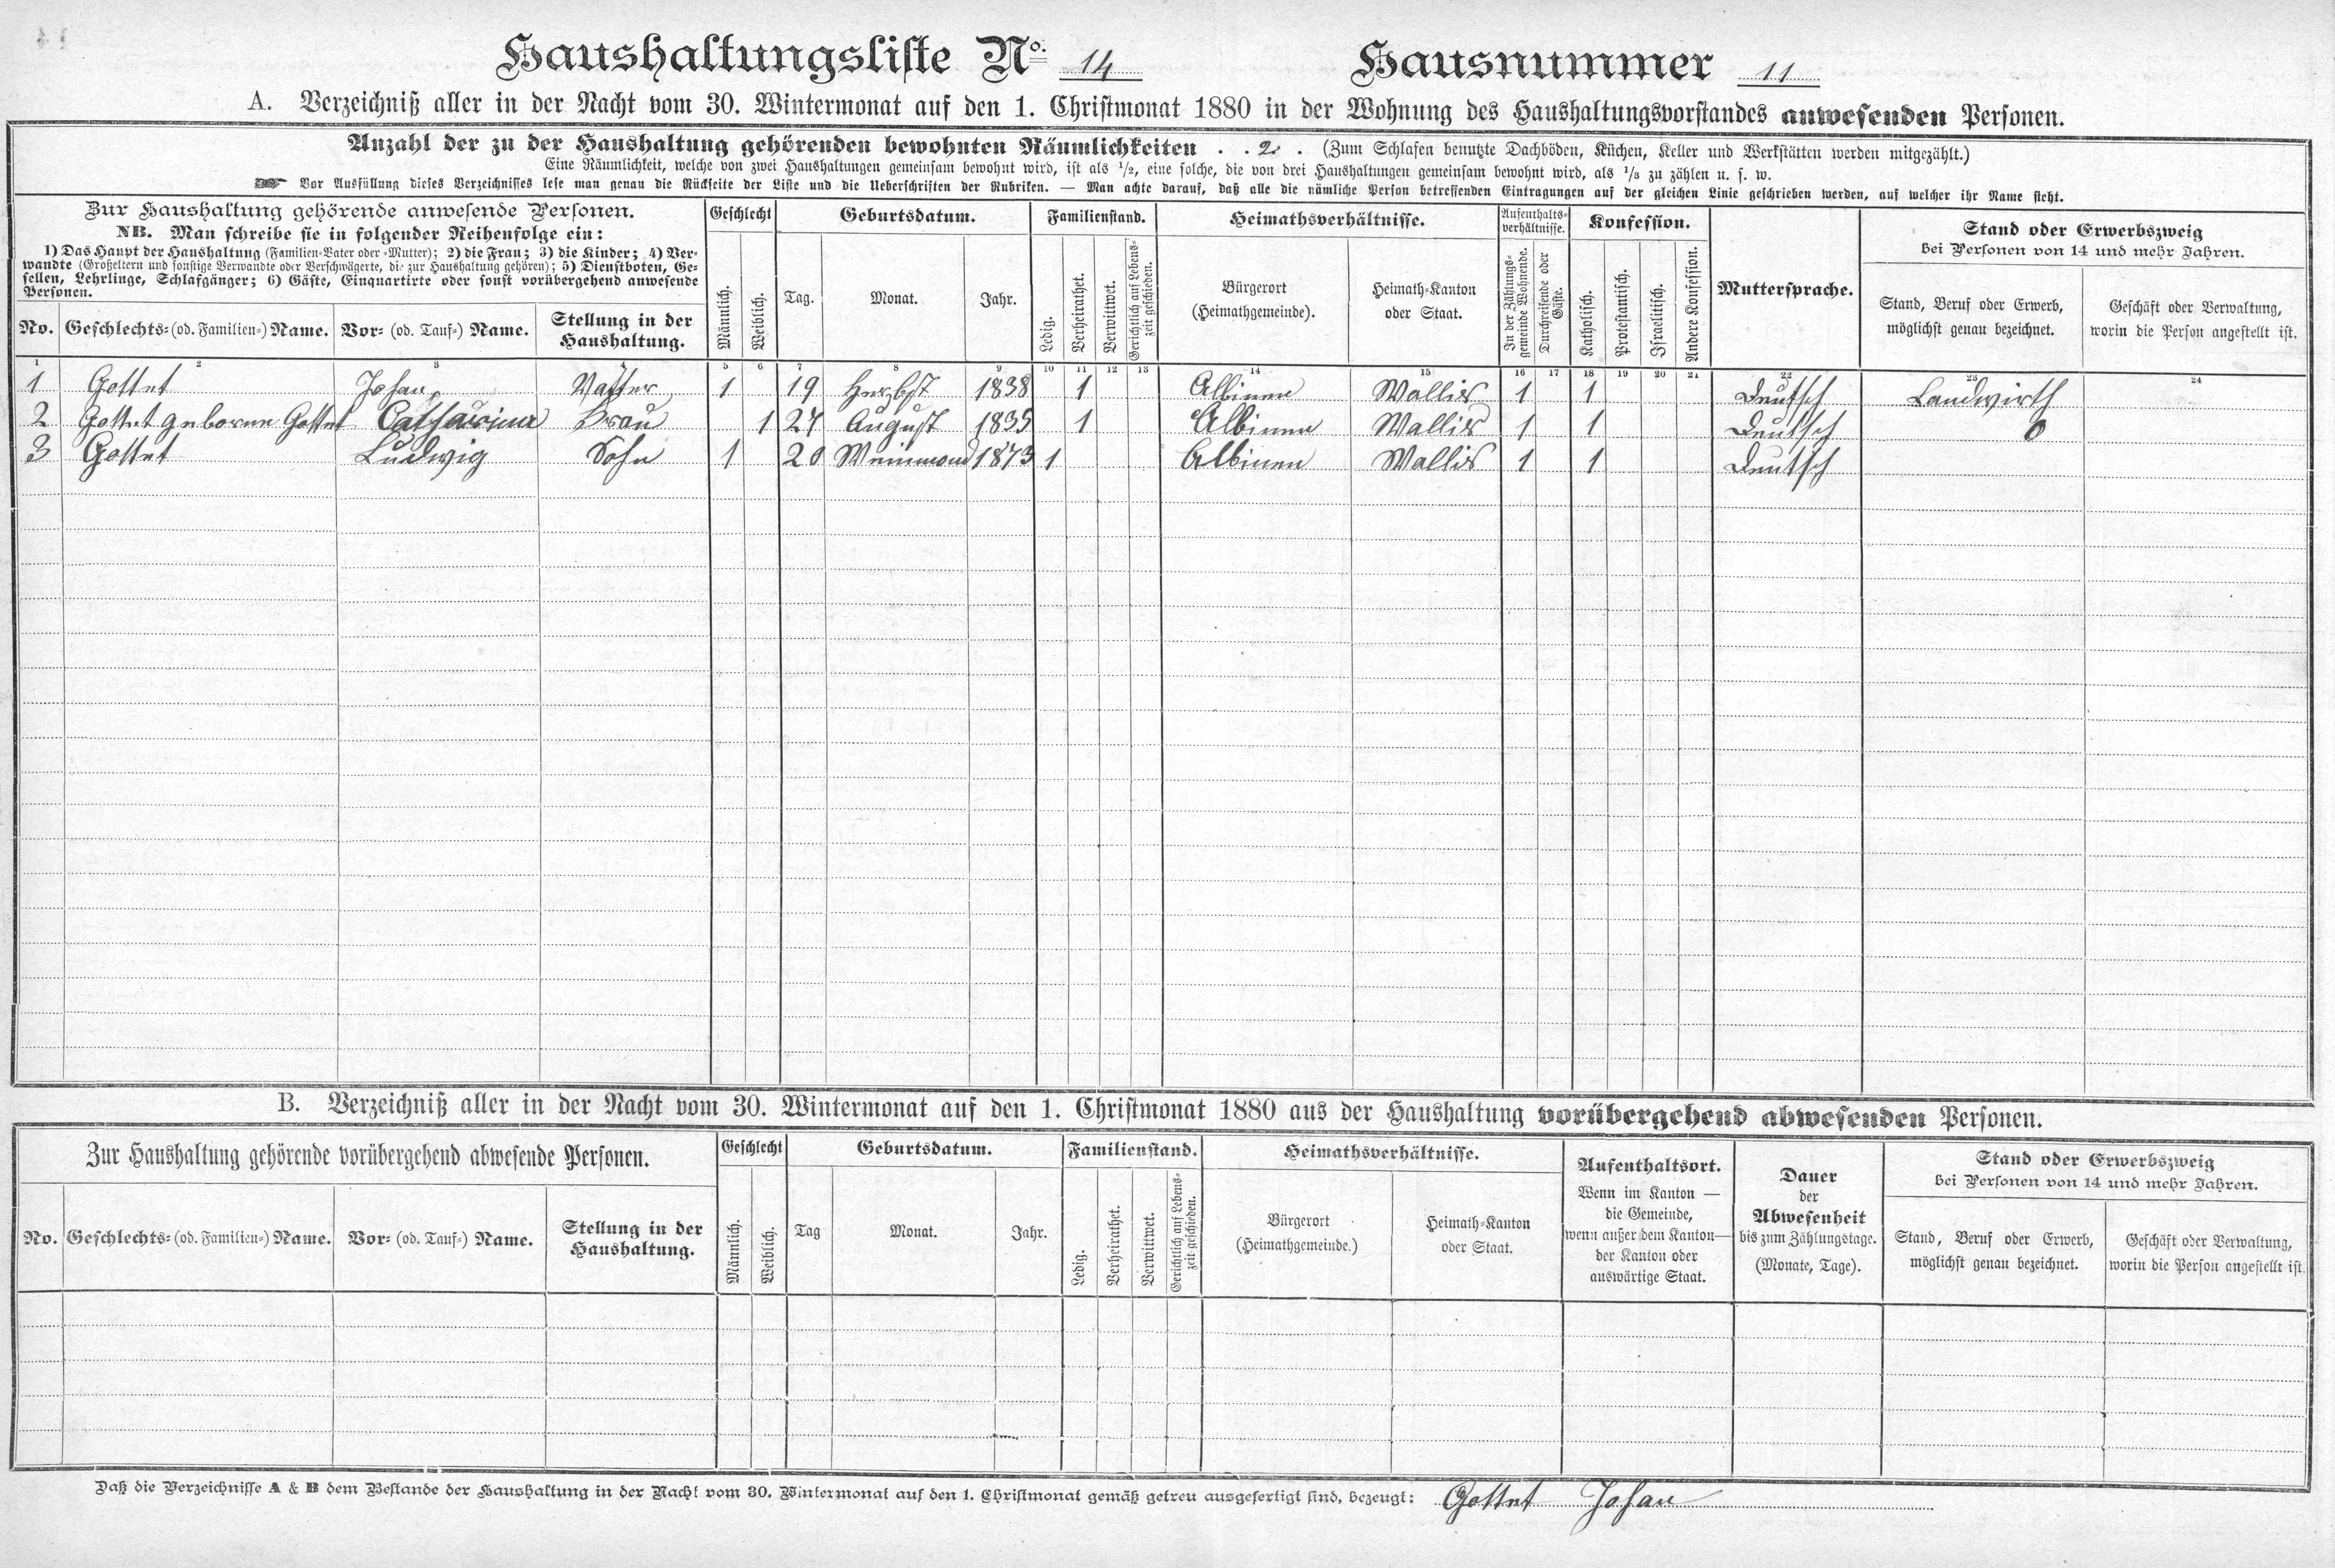 Haushaltungsliste No. 14 Hausnummer 11
A. Verzeichniß aller in der Nacht vom 30. Wintermonat auf den 1. Christmonat 1880 in der Wohnung des Haushaltungsvorstandes anwesenden Personen.
Anzahl der zu der Haushaltung gehörenden bewohnten Räumlichkeiten . . 2 . (Zum Schlafen benutzte Dachböden, Küchen, Keller und Werkstätten werden mitgezählt.)
Eine Räumlichkeit, welche von zwei Haushaltungen gemeinsam bewohnt wird, ist als 1/2, eine solche, die von drei Haushaltungen gemeinsam bewohnt wird, als 1/3 zu zählen u. s. w.
☞ Vor Ausfüllung dieses Verzeichnisses lese man genau die Rückseite der Liste und die Ueberschriften der Rubriken. — Man achte darauf, daß alle die nämliche Person betreffenden Eintragungen auf der gleichen Linie geschrieben werden, auf welcher ihr Name steht.
Zur Haushaltung gehörende anwesende Personen.
NB. Man schreibe sie in folgender Reihenfolge ein:
1) Das Haupt der Haushaltung (Familien-Vater oder -Mutter); 2) die Frau; 3) die Kinder; 4) Ver-
wandte (Großeltern und sonstige Verwandte oder Verschwägerte, die zur Haushaltung gehören); 5) Dienstboten, Ge-
sellen, Lehrlinge, Schlafgänger; 6) Gäste, Einquartirte oder sonst vorübergehend anwesende
Personen.
No. Geschlechts- (od. Familien-) Name. Vor- (od. Tauf-) Name. Stellung in der
Haushaltung.
Geschlecht
Männlich.
Weiblich.
Geburtsdatum.
Tag. Monat. Jahr.
Familienstand.
Ledig.
Verheirathet.
Verwittwet.
Gerichtlich auf Lebens-
zeit geschieden.
Heimathsverhältnisse.
Bürgerort
(Heimathgemeinde).
Heimath-Kanton
oder Staat.
Aufenthalts-
verhältnisse.
In der Zählungs-
gemeinde Wohnende.
Durchreisende oder
Gäste.
Konfession.
Katholisch.
Protestantisch.
Israelitisch.
Andere Konfession.
Muttersprache.
Stand oder Erwerbszweig
bei Personen von 14 und mehr Jahren.
Stand, Beruf oder Erwerb,
möglichst genau bezeichnet.
Geschäft oder Verwaltung,
worin die Person angestellt ist.
1 2 3 4 5 6 7 8 9 10 11 12 13 14 15 16 17 18 19 20 21 22 23 24
1 Gottet Johan Vatter 1 19 Herbst 1838 1 Albinen Wallis 1 1 Deutsch Landwirth
2 Gottet geborne Gottet Catharina Frau 1 27 August 1835 1 Albinen Wallis 1 1 Deutsch 0
3 Gottet Ludwig Sohn 1 20 Weinmond 1873 1 Albinen Wallis 1 1 Deutsch
B. Verzeichniß aller in der Nacht vom 30. Wintermonat auf den 1. Christmonat 1880 aus der Haushaltung vorübergehend abwesenden Personen.
Zur Haushaltung gehörende vorübergehend abwesende Personen.
No. Geschlechts- (od. Familien-) Name. Vor- (od. Tauf-) Name. Stellung in der
Haushaltung.
Geschlecht
Männlich.
Weiblich.
Geburtsdatum.
Tag Monat. Jahr.
Familienstand.
Ledig.
Verheirathet.
Verwittwet.
Gerichtlich auf Lebens-
zeit geschieden.
Heimathsverhältnisse.
Bürgerort
(Heimathgemeinde.)
Heimath-Kanton
oder Staat.
Aufenthaltsort.
Wenn im Kanton —
die Gemeinde,
wenn außer dem Kanton—
der Kanton oder
auswärtige Staat.
Dauer
der
Abwesenheit
bis zum Zählungstage.
(Monate, Tage).
Stand oder Erwerbszweig
bei Personen von 14 und mehr Jahren.
Stand, Beruf oder Erwerb,
möglichst genau bezeichnet.
Geschäft oder Verwaltung,
worin die Person angestellt ist.
Daß die Verzeichnisse A & B dem Bestande der Haushaltung in der Nacht vom 30. Wintermonat auf den 1. Christmonat gemäß getreu ausgefertigt sind, bezeugt: Gottet Johan